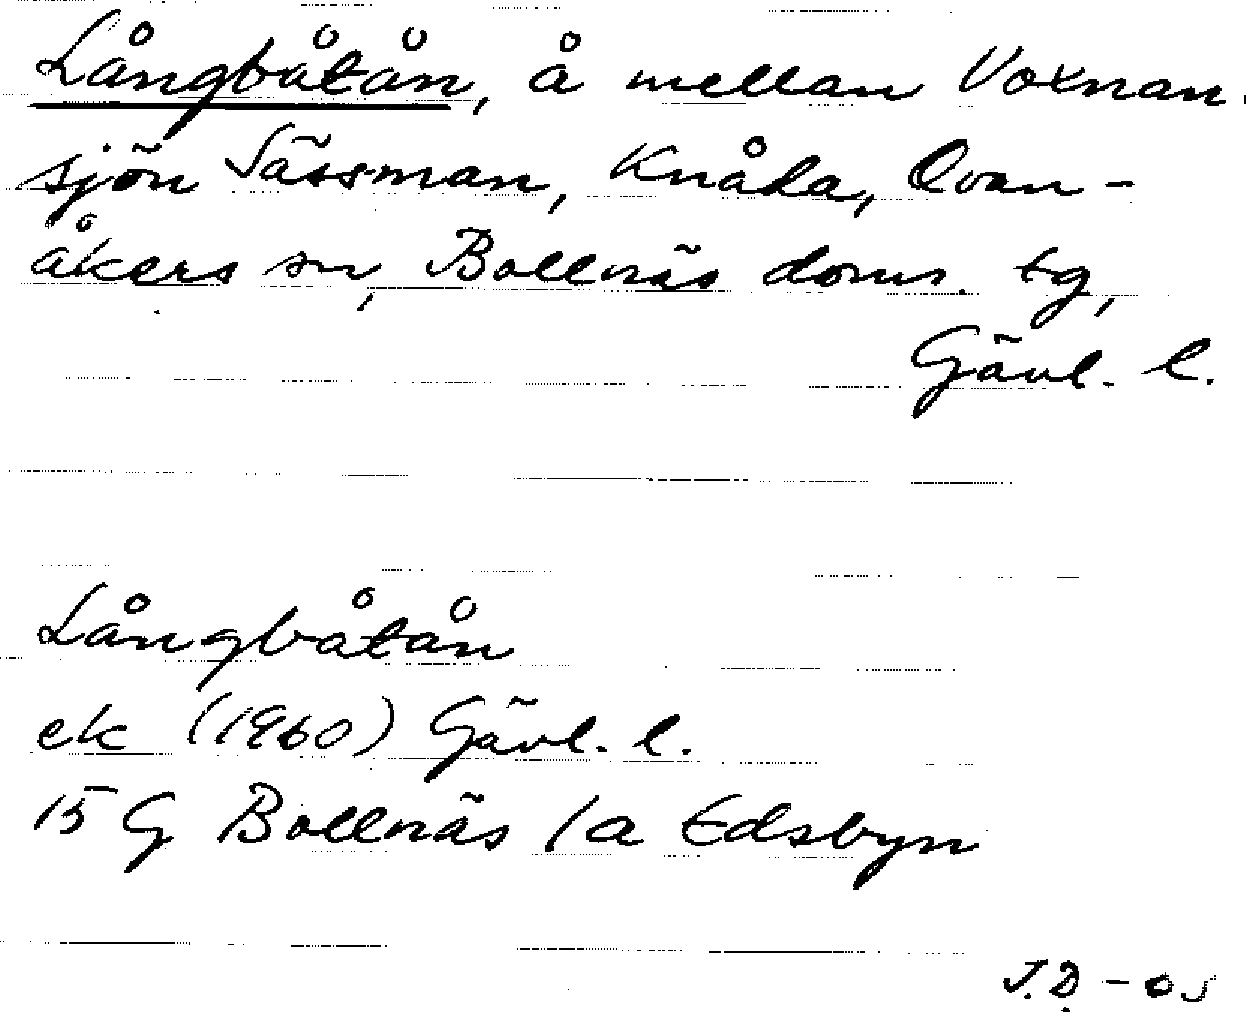 Långbåtån, å mellan Voxnan.
sjön Sässman, Knåda, Ovan-
åkers sn, Bollnäs doms. tg,
Gävl. l.
Långbåtån
ek (1960) Gävl. l.
15 G Bollnäs 1a Edsbyn
J.D. - 05